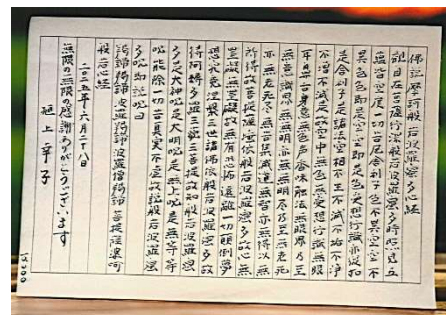 佛説摩訶般若波羅蜜多心経
観自在菩薩行深般若波羅蜜多時照見五
蘊皆空度一切苦厄舎利子色不異空空不
異色色即是空空即是色受想行識亦復如
是舎利子是諸法空相不生不滅不垢不浄
不増不減是故空中無色無受想行識無眼
耳鼻舌身意無色声香味触法無眼界乃至
無意識界無無明亦無無明尽乃至無老死
亦無老死尽無苦集滅道無智亦無得以無
所得故菩提薩埵依般若波羅蜜多故心無
罣礙無罣礙故無有恐怖遠離一切顛倒夢
想究竟涅槃三世諸佛依般若波羅蜜多故
得阿耨多羅三藐三菩提故知般若波羅蜜
多是大神呪是大明呪是無上呪是無等等
呪能除一切苦真実不虚故説般若波羅蜜
多呪即説呪曰
羯諦羯諦波羅羯諦波羅僧羯諦菩提薩婆訶
般若心経
二〇二五年六月二十八日
無限の無限の感謝ありがとうございます
池上幸子